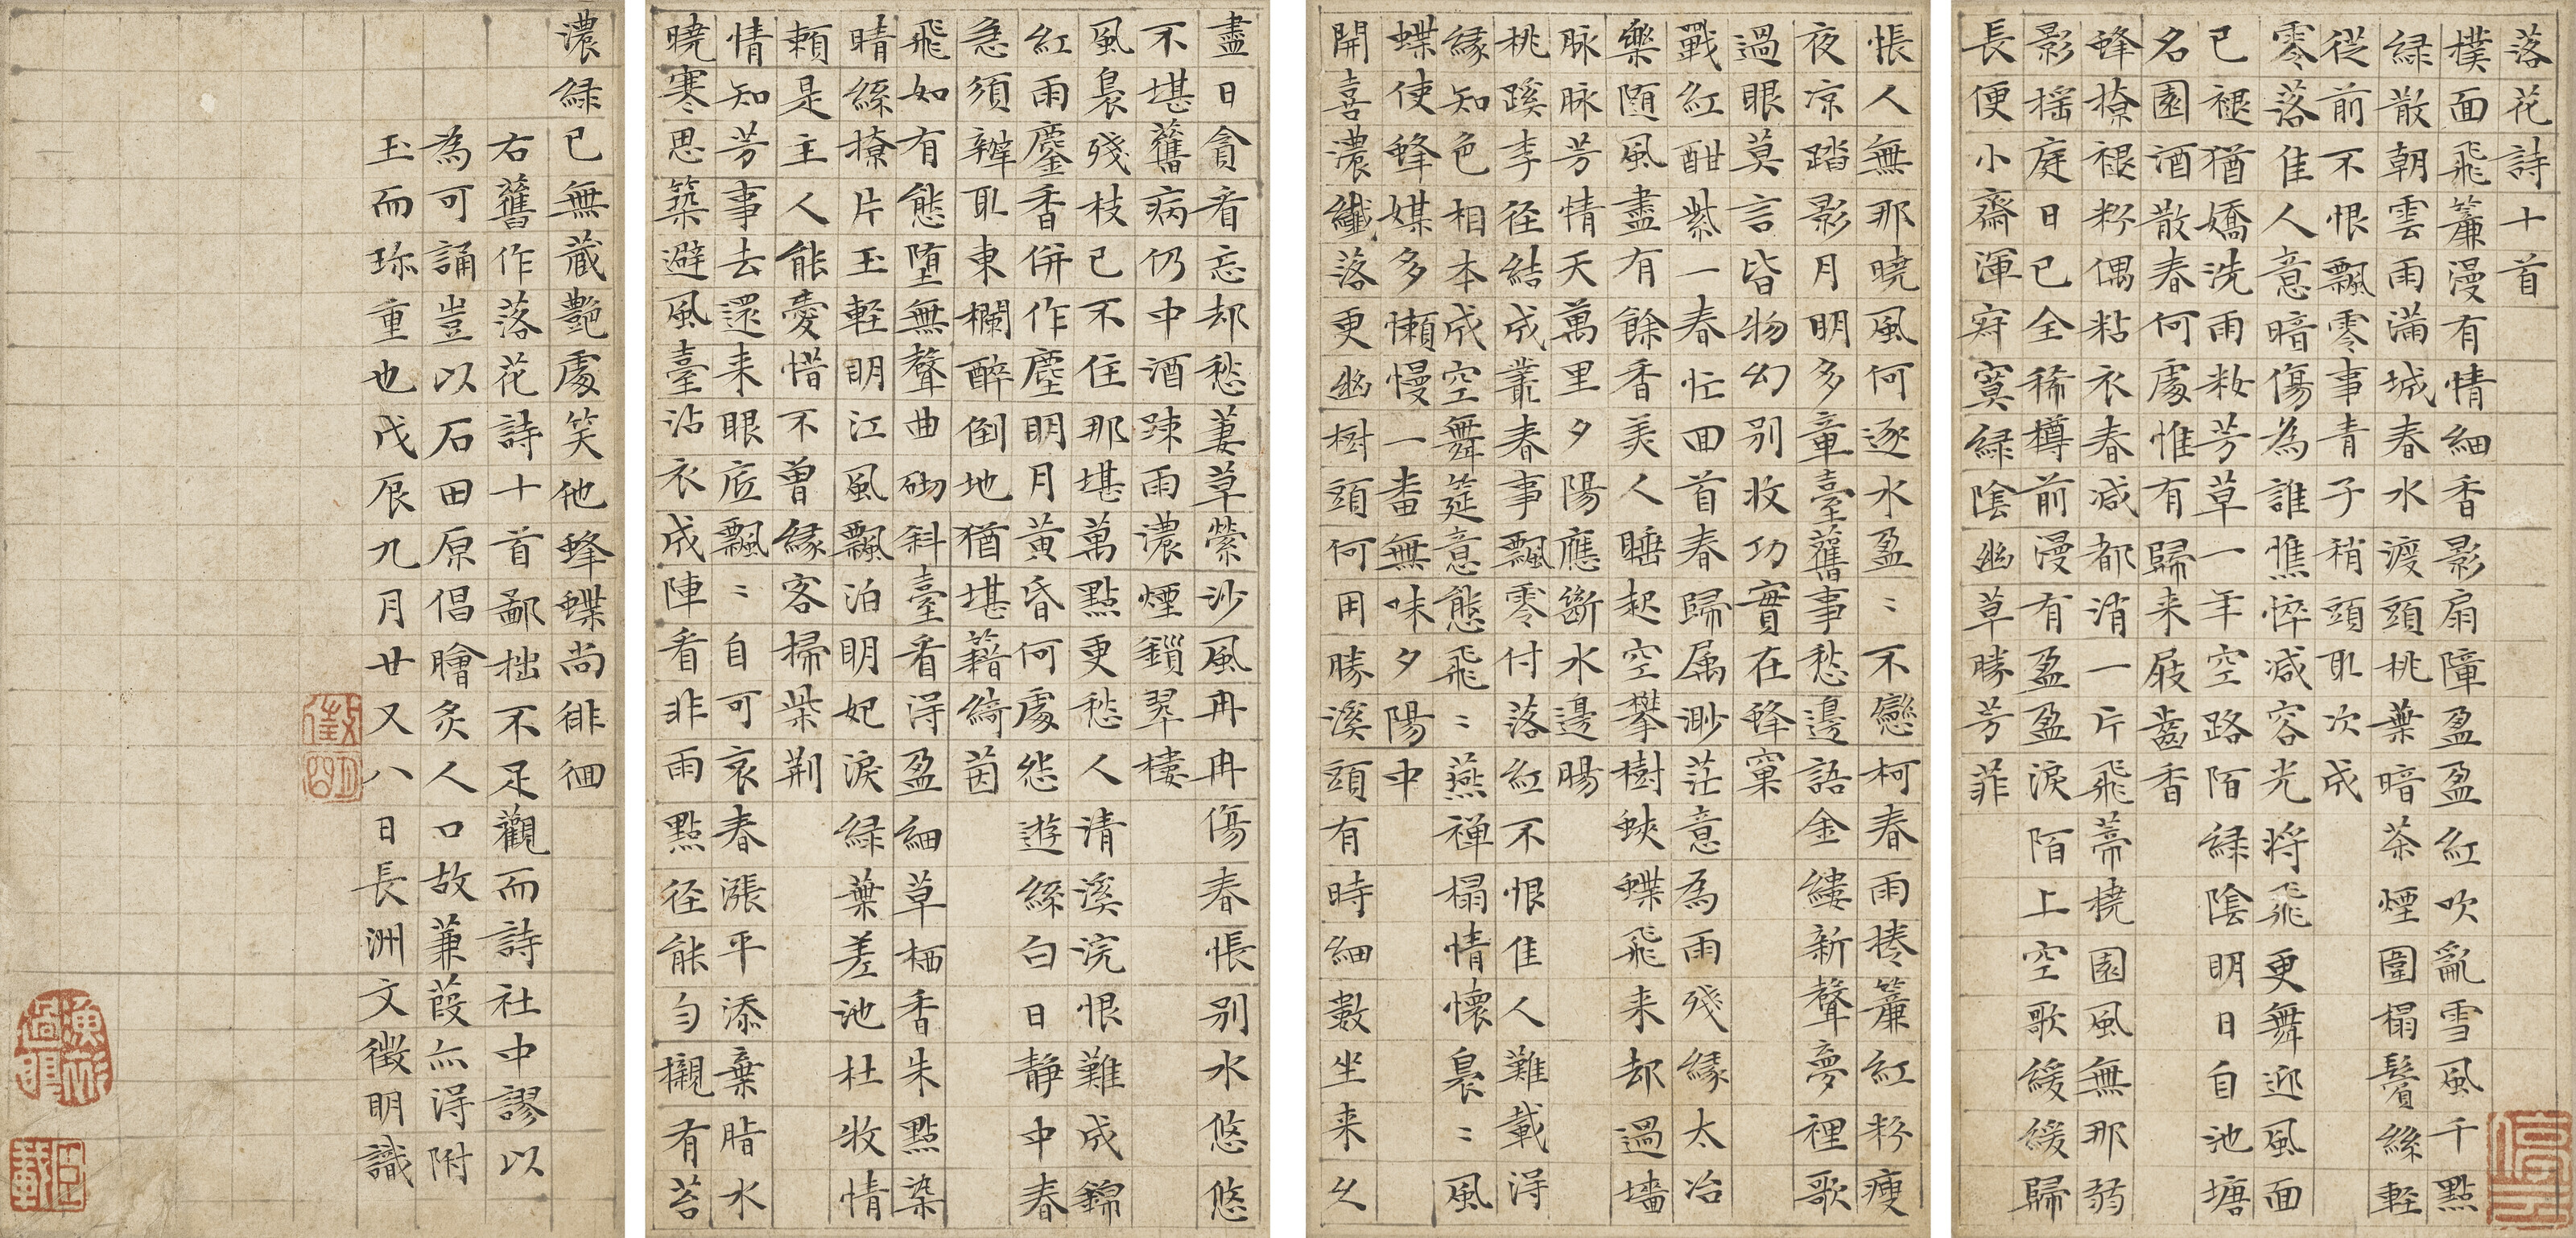 落花詩十首
撲面飛簾漫有情細香影扇障盈盈紅吹亂雪風千點
綠散朝雲雨滿城春水渡頭桃葉暗茶煙圍榻鬢絲輕
從前不恨飄零事青子稍頭取次成
零落佳人意暗傷為誰憔悴減容光將飛更舞迎風面
已褪猶嬌洗雨粧芳草一年空路陌綠陰明日自池塘
名園酒散春何處惟有歸来屐齒香
蜂撩褪粉偶粘衣春減都消一片飛蒂撓園風無那弱
影揺庭日已全稀樽前漫有盈盈淚陌上空歌緩緩歸
長便小齋渾寂寞綠陰幽草勝芳菲
悵人無那曉風何逐水盈〻不戀柯春雨捲簾紅粉瘦
夜凉踏影月明多章臺舊事愁邊語金縷新聲夢裡歌
過眼莫言皆物幻別收功實在蜂窠
戰紅酣紫一春忙回首春歸属渺茫意為雨殘緣太冶
樂随風盡有餘香美人睡起空攀樹蛺蝶飛来却過墻
脉脉芳情天萬里夕陽應斷水邊腸
桃蹊李径結成叢春事飄零付落紅不恨佳人難載得
緣知色相本成空舞筵意態飛〻燕禅榻情懷裊〻風
蝶使蜂媒多懶慢一番無味夕陽中
開喜濃纖落更幽樹頭何用勝溪頭有時細數坐来久
盡日貪看忘却愁萋草縈沙風冉冉傷春悵別水悠悠
不堪舊病仍中酒踈雨濃煙鎖翠樓
風裊殘枝已不住那堪萬點更愁人清溪浣恨難成錦
紅雨鏖香併作塵明月黃昏何處怨遊絲白日靜中春
急須辦取東欄醉倒地猶堪籍綺茵
飛如有態墮無聲曲砌斜臺看得盈細草栖香朱點染
晴絲撩片玉輕明江風飄泊明妃淚綠葉差池杜牧情
賴是主人能愛惜不曾緣客掃柴荆
情知芳事去還来眼底飄〻自可哀春漲平添棄脂水
曉寒思築避風臺沾衣成陣看非雨點径能勻襯有苔
濃綠已無藏艷處笑他蜂蝶尚徘徊
右舊作落花詩十首鄙拙不足觀而詩社中謬以
為可誦豈以石田原倡膾炙人口故蒹葭亦得附
玉而珎重也戊辰九月廿又八日長洲文徵明識